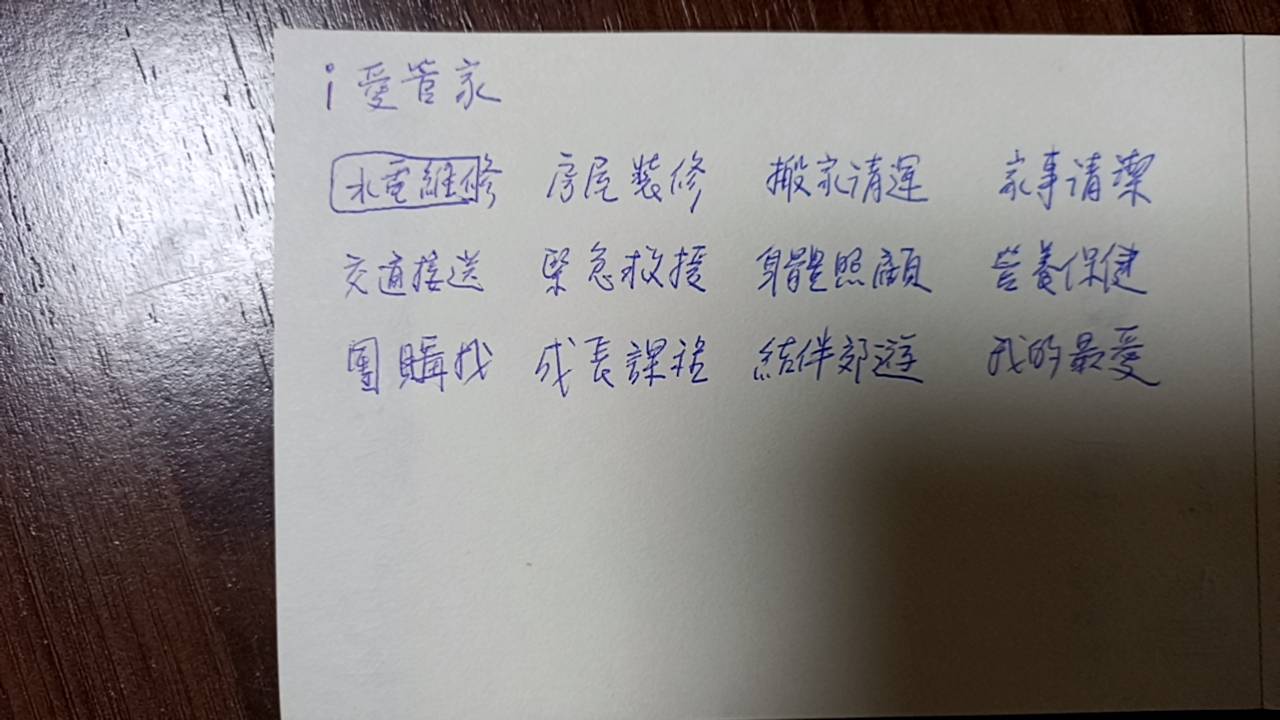 i 愛管家
水電維修 房屋裝修 搬家清運 家事清潔
交通接送 緊急救援 身體照顧 營養保健
團購找 成長課程 結伴郊遊 我的最愛